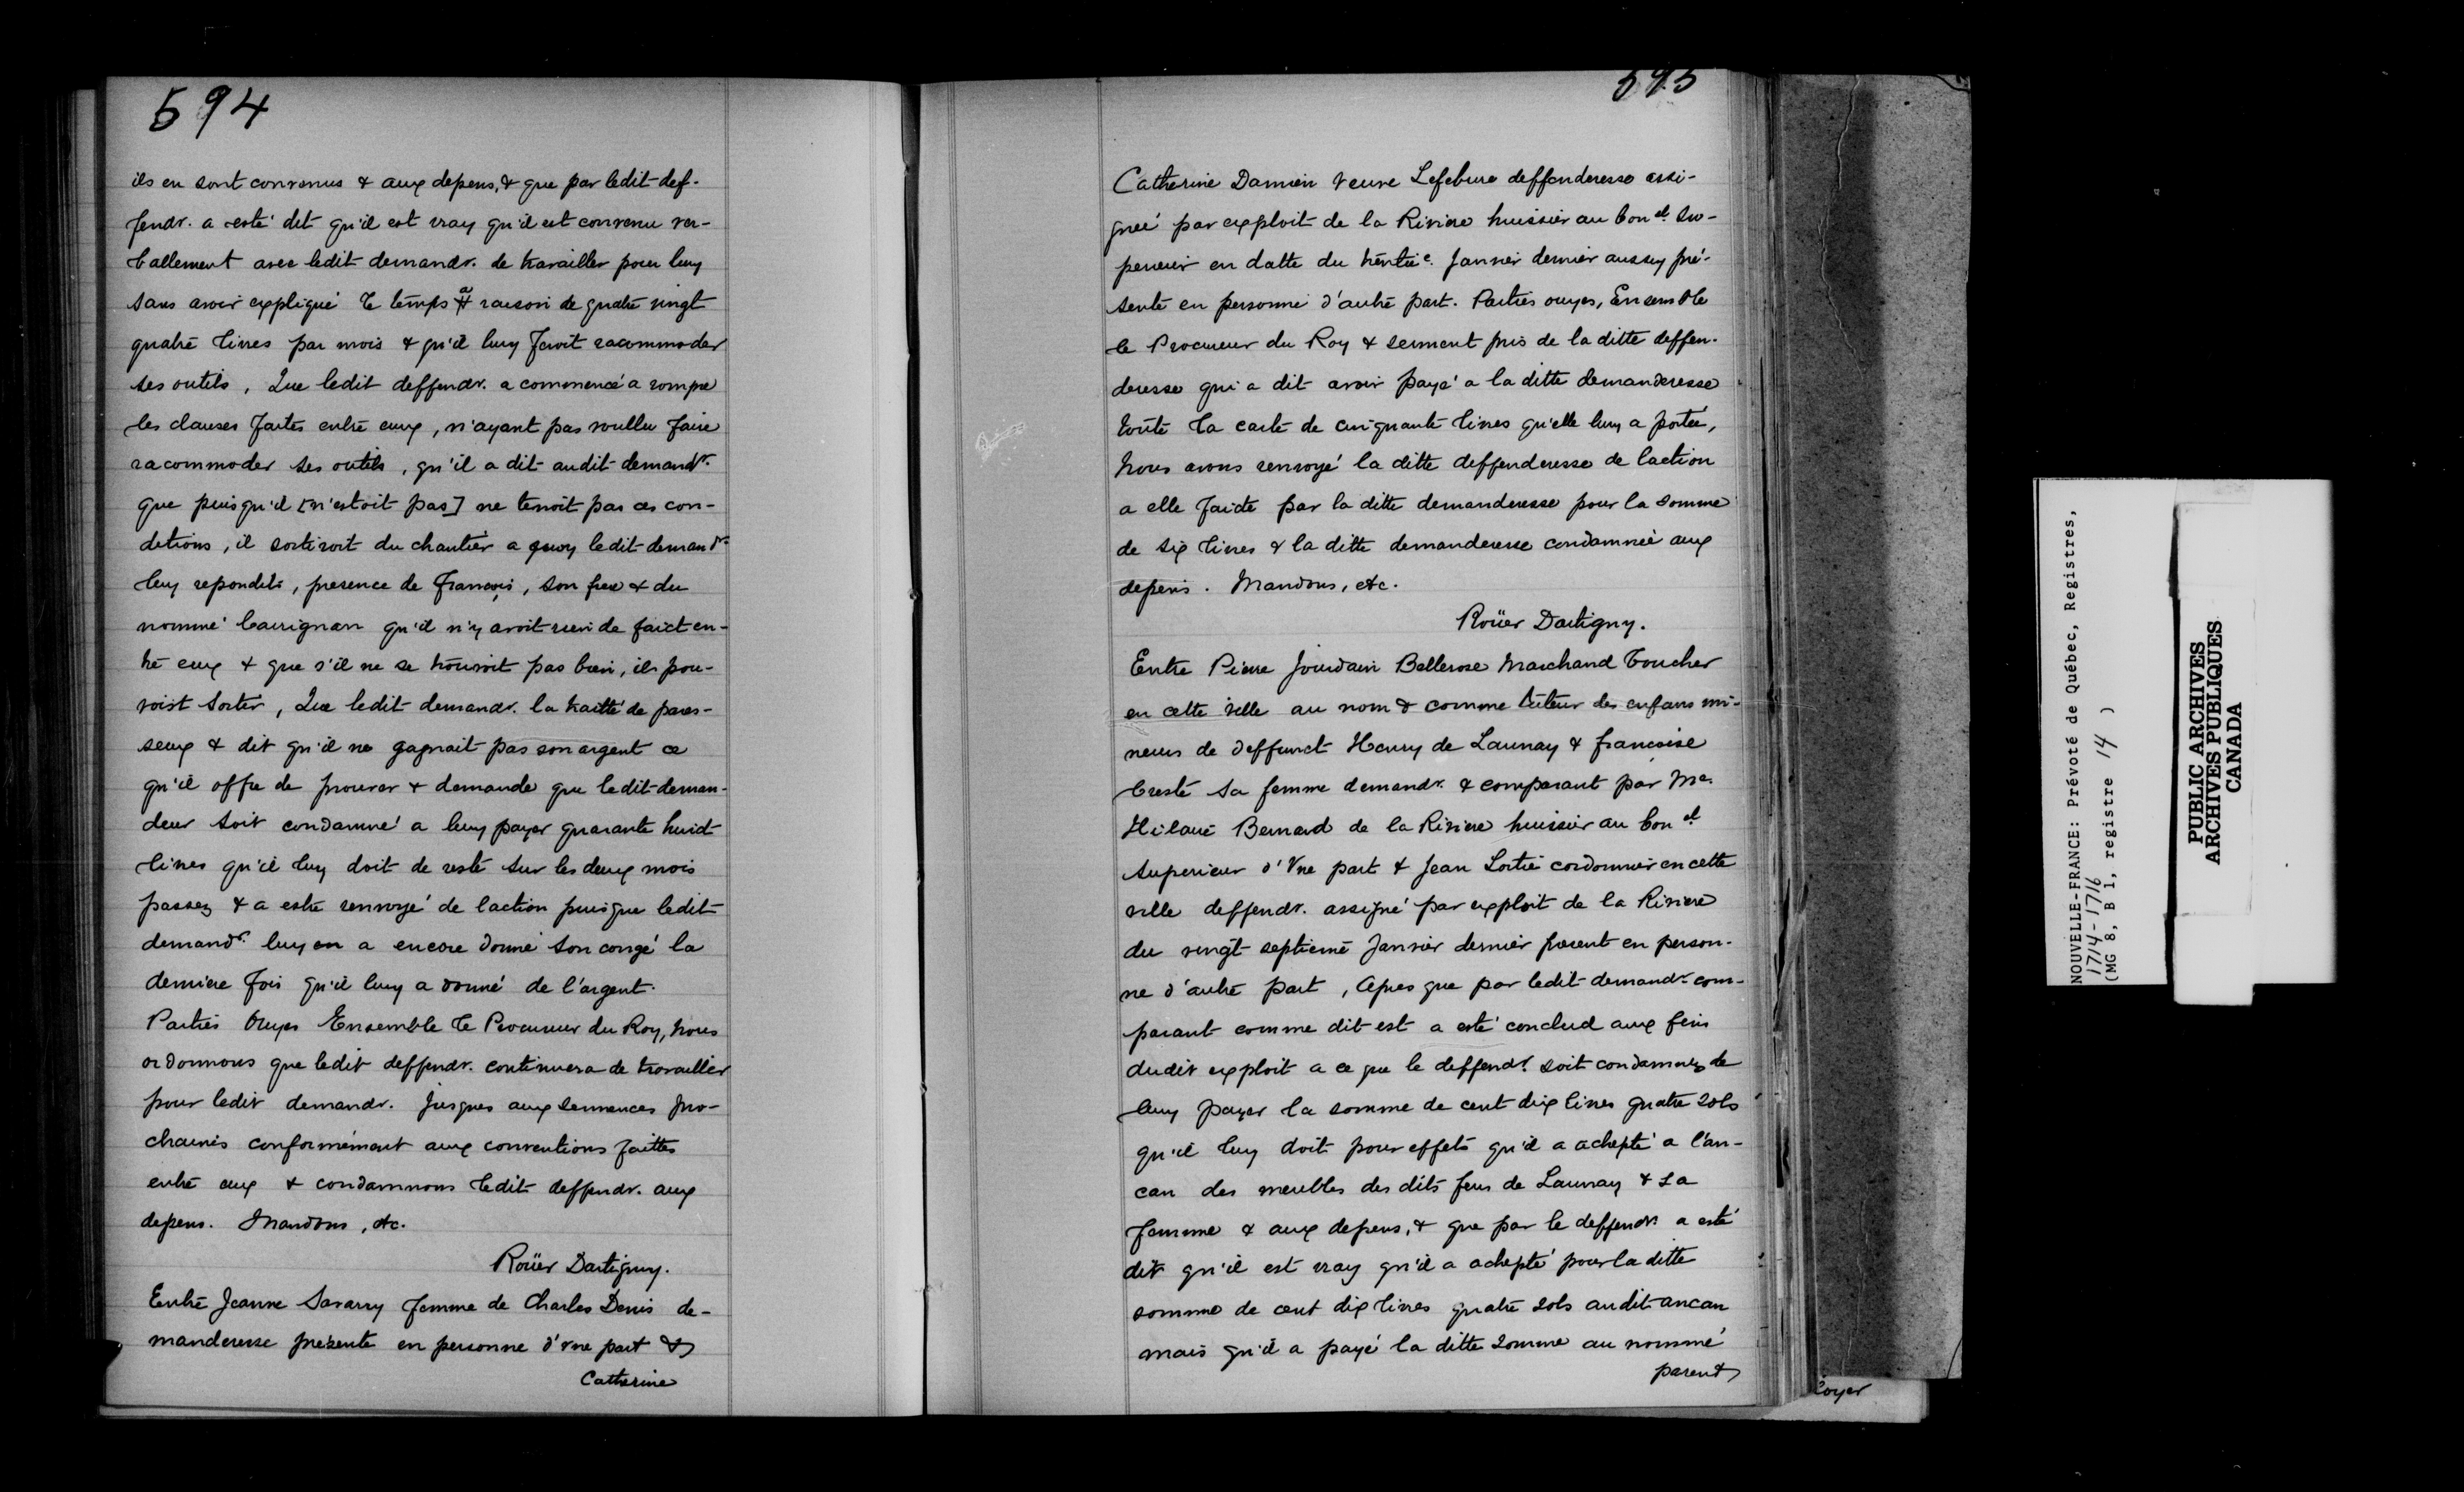 594
ils en sont convenus & aux depens, & que par ledit def-
fendr. a esté dit qu'il est vray qu'il est convenu ver-
ballement avec ledit demandr. de travailler pour luy
sans avoir expliqué le temps a raison de quatre vingt
quatre livres par mois & qu'il luy feroit racommoder
ses outils, Que ledit deffendr. a commencé a rompre
les clauses faites entre eux, n'ayant pas voullu faire
racommoder ses outils, qu'il a dit audit demandr.
que puisqu'il [n'estoit pas] ne tenoit pas ces con-
ditions, il sortiroit du chantier a quoy ledit demandr.
luy repondits, presence de françois, son frere & du
nommé Carrignan qu'il n'y avoit rien de faict en-
tre eux & que s'il ne se trouvoit pas bien, ils pou-
voist sortir, Que ledit demandr. la traitté de pares-
seux & dit qu'il ne gagnait pas son argent ce
qu'il offre de prouver & demande que ledit deman-
deur soit condamné a luy payer quarante huid
livres qu'il luy doit de reste sur les deux mois
passez & a estre renvoyé de laction puisque ledit
demandr. luy en a encore donné son congé la
derniere fois qu'il luy a donné de l'argent.
Parties Ouyes Ensemble le Procureur du Roy, nous
ordonnons que ledit deffendr. continuera de travailler
pour ledit demandr. jusques aux semences pro-
chaines conformément aux conventions faittes
entre eux & condamnons ledit deffendr. aux
depens. Mandons, etc.
Roüer Dartigny.
Entre Jeanne Savarry femme de Charles Denis de-
manderesse présente en personne d'vne part &
Catherine
595
Catherine Damien veuve Lefebvre deffenderesse assi-
gneé par exploit de la Riviere huissier au Conel. Su-
perieur en datte du trentiee. Janvier dernier aussy pré-
sente en personne d'autre part. Parties ouyes, Ensemble
le Procureur du Roy & serment pris de la ditte deffen-
deresse qui a dit avoir payé a la ditte demanderesse
toute la carte de cinquante livres qu'elle luy a portée,
Nous avons renvoyé la ditte deffenderesse de laction
a elle faicte par la ditte demanderesse pour la somme
de six livres & la ditte demanderesse condamneé aux
depens. Mandons, etc.
Roüer Dartigny.
Entre Pierre Jourdain Bellerose Marchand boucher
en cette ville au nom & comme tuteur des enfans mi-
neurs de deffunct Henry de Launay & francoise
Cresté sa femme demandr. & comparant par Me.
Hilaire Bernard de la Riviere huissier au Conel.
Superieur d'vne part & Jean Lortie cordonnier en cette
ville deffendr. assigné par exploit de la Riviere
du vingt septieme Janvier dernier present en person-
ne d'autre part, Apres que par ledit demandr. com-
parant comme dit est a esté conclud aux fins
dudit exploit a ce que le deffendr. soit condamnez de
luy payer la somme de cent dix livres quatre sols
qu'il luy doit pour effets qu'il a achepté a l'an-
can des meubles des dits feus de Launay & sa
femme & aux depens, & que par le deffendr. a esté
dit qu'il est vray qu'il a achepté pour la ditte
somme de cent dix livres quatre sols audit ancan
mais qu'il a payé la ditte somme au nommé
parent
loyer
NOUVELLE-FRANCE: Prévoté de Québec, Registres,
1714-1716
(MG 8, B 1, registre 14 )
PUBLIC ARCHIVES
ARCHIVES PUBLIQUES
CANADA